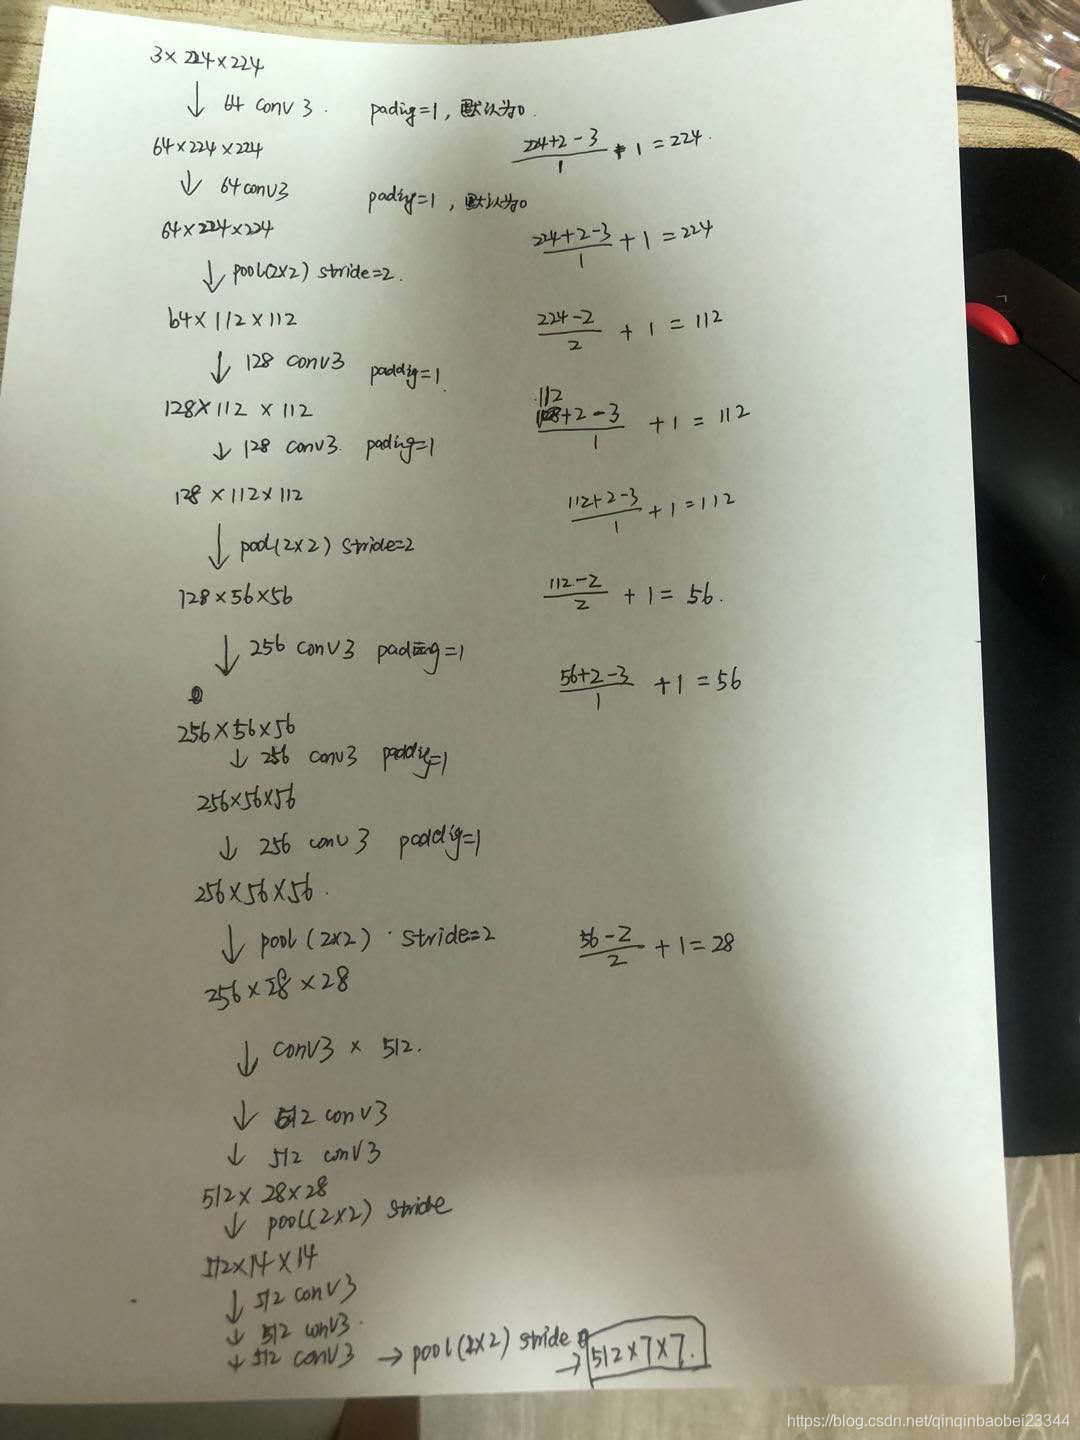 3×224×224
↓ 64 conv 3. pading=1, 默认为0.
64×224×224 224+2-3/1 + 1 = 224.
↓ 64 conv3 pading=1, 默认为0
64×224×224 224+2-3/1 + 1 = 224
↓ pool(2×2) stride=2.
64×112×112 224-2/2 + 1 = 112
↓ 128 conv3 padding=1.
128×112×112 112+2-3/1 + 1 = 112
↓ 128 conv3. pading=1
128×112×112 112+2-3/1 + 1 = 112
↓ pool(2×2) stride=2
128×56×56 112-2/2 + 1 = 56.
↓ 256 conv3 pading=1
56+2-3/1 + 1 = 56
256×56×56
↓ 256 conv3 padding=1
256×56×56
↓ 256 conv3 padding=1
256×56×56.
↓ pool(2×2) stride=2 56-2/2 + 1 = 28
256×28×28
↓ conv3 × 512.
↓ 512 conv3
↓ 512 conv3
512×28×28
↓ pool(2×2) stride
512×14×14
↓ 512 conv3
↓ 512 conv3.
↓ 512 conv3 → pool(2×2) stride → 512×7×7.
https://blog.csdn.net/qinqinbaobei23344